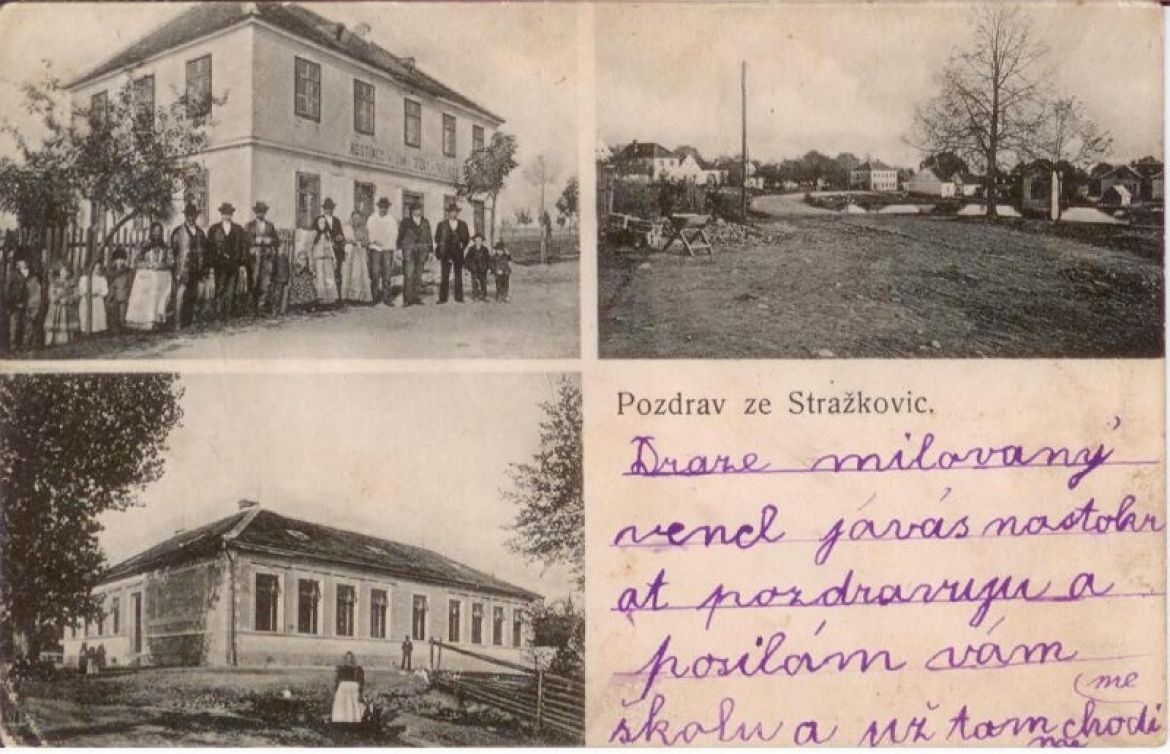 HOSTINEC
Pozdrav ze Stražkovic.
Draze milovaný
vencl jávás nastokr
át pozdravuju a
posilám vám
školu a už tam chodi
me